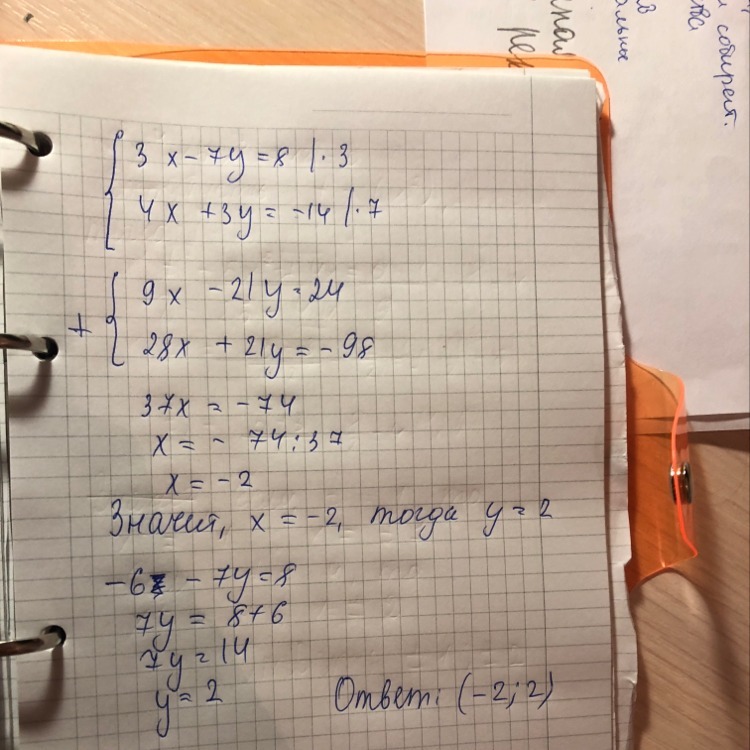 3x - 7y = 8 | · 3
4x + 3y = -14 | · 7
9x - 21y = 24
+
28x + 21y = -98
37x = -74
x = - 74 : 37
x = -2
Значит, x = -2, тогда y = ?
-6 - 7y = 8
7y = 8+6
7y = 14
y = 2
Ответ: (-2; 2)
собирет.